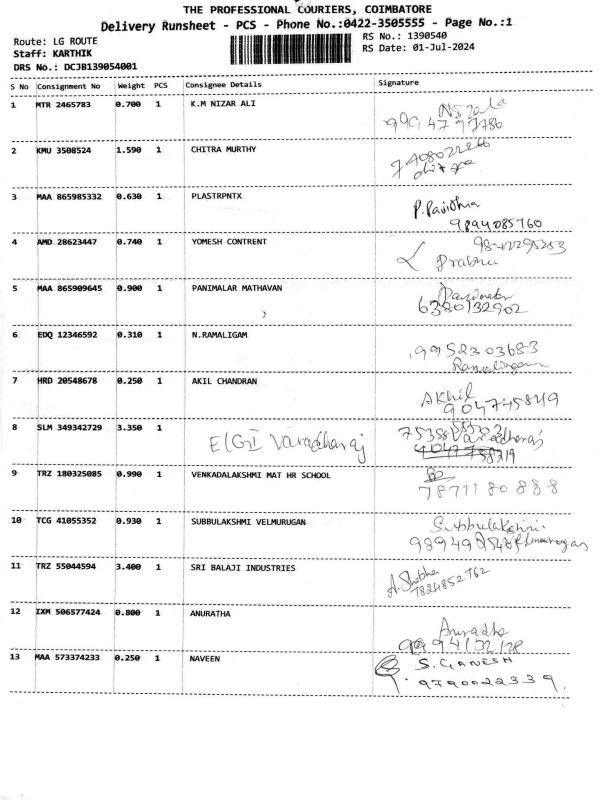 THE PROFESSIONAL COURIERS, COIMBATORE
Delivery Runsheet - PCS - Phone No.:0422-3505555 - Page No.:1
Route: LG ROUTE
Staff: KARTHIK
DRS No.: DCJB139054001
RS No.: 1390540
RS Date: 01-Jul-2024
S No Consignment No Weight PCS Consignee Details Signature
1 MTR 2465783 0.700 1 K.M NIZAR ALI
2 KMU 3508524 1.590 1 CHITRA MURTHY
7408022266
3 MAA 865985332 0.630 1 PLASTRPNTX P. Pavithra
9894085760
4 AMD 28623447 0.740 1 YOMESH CONTRENT
Prabhu
5 MAA 865909645 0.900 1 PANIMALAR MATHAVAN
6380132902
6 EDQ 12346592 0.310 1 N.RAMALIGAM
9952303683
Ramalingam
7 HRD 20548678 0.250 1 AKIL CHANDRAN
AKhil
8 SLM 349342729 3.350 1 ELGI Varadharaj
Varadharaj
9 TRZ 180325085 0.990 1 VENKADALAKSHMI MAT HR SCHOOL
7871180888
10 TCG 41055352 0.930 1 SUBBULAKSHMI VELMURUGAN
11 TRZ 55044594 3.400 1 SRI BALAJI INDUSTRIES A. Shobha
7824852762
12 IXM 506577424 0.800 1 ANURATHA
Anuradha
13 MAA 573374233 0.250 1 NAVEEN S. GANESH
9790022339